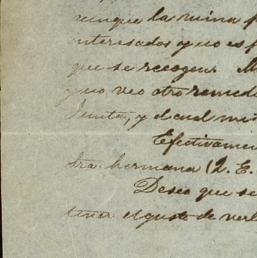 aunque la ruina p
interesados y no es p
que se recogen. M
y no veo otro remed
Junta, y el cual mi
Efectivamen
tra hermana (Q. E.
Deseo que se
tener el gusto de verl